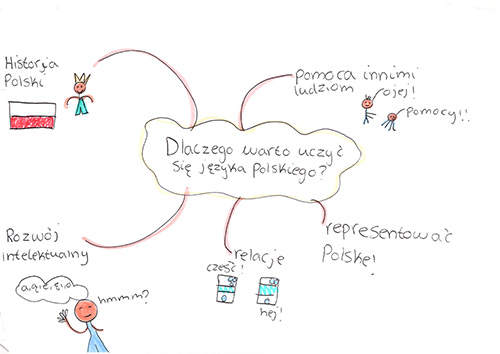 Historja
Polski
pomoca innimi
ludziom
ojej!
pomocy!!
Dlaczego warto uczyć
się języka polskiego?
Rozwój
intelektualny
hmmm?
relacje
cześć!
hej!
representować
Polskę!